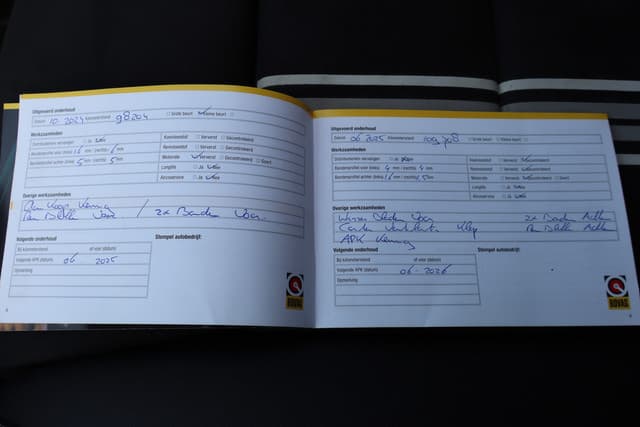 Uitgevoerd onderhoud
Datum 10 2024 Kilometerstand 98204 Grote beurt Kleine beurt
Werkzaamheden
Distributieriem vervangen Ja Nee
Bandenprofiel voor (links) 6 mm / (rechts) 6 mm
Bandenprofiel achter (links) 5 mm / (rechts) 5 mm
Koelvloeistof Ververst Gecontroleerd
Remvloeistof Ververst Gecontroleerd
Motorolie Ververst Gecontroleerd Soort
Longlife Ja Nee
Aircoservice Ja Nee
Overige werkzaamheden
/ 2x Banden Voor
Volgende onderhoud
Bij kilometerstand of voor (datum)
Volgende APK (datum) 06 2025
Opmerking
Stempel autobedrijf:
BOVAG
Uitgevoerd onderhoud
Datum 06 2025 Kilometerstand Grote beurt Kleine beurt
Werkzaamheden
Distributieriem vervangen Ja
Bandenprofiel voor (links) 4 mm / (rechts) 4 mm
Bandenprofiel achter (links) 6 mm / (rechts) 5 mm
Koelvloeistof Ververst Gecontroleerd
Remvloeistof Ververst Gecontroleerd
Motorolie Ververst Gecontroleerd Soort
Longlife Ja Nee
Aircoservice Ja Nee
Overige werkzaamheden
Voor 2x Banden Achter
Achter
APK Keuring
Volgende onderhoud
Bij kilometerstand of voor (datum)
Volgende APK (datum) 06-2026
Opmerking
Stempel autobedrijf:
BOVAG